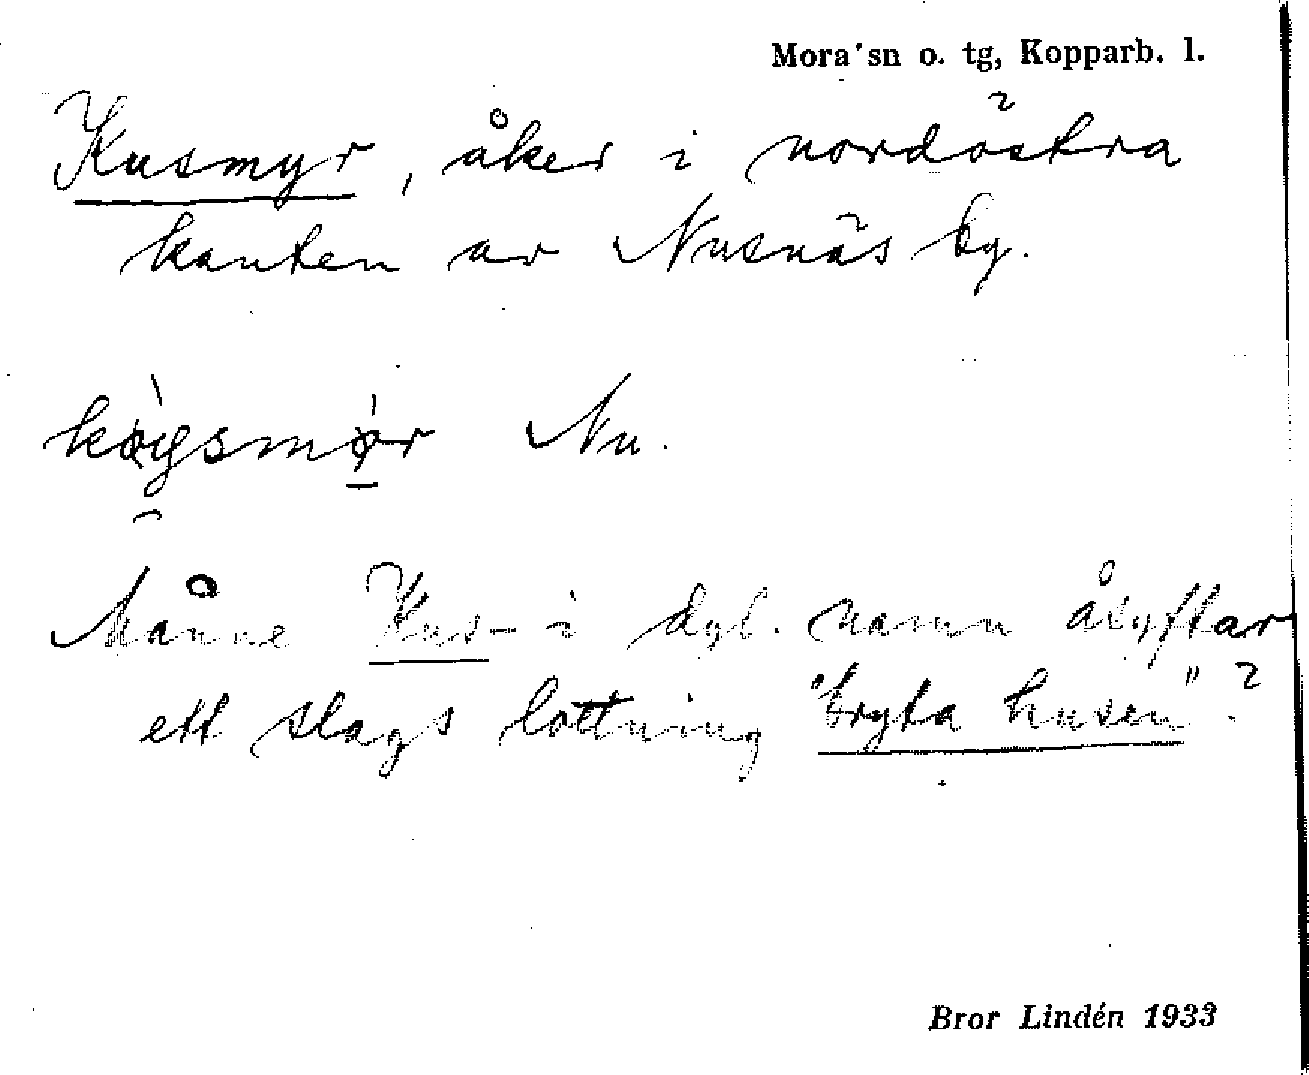 Mora sn o. tg, Kopparb. l.
Kusmyr, åker i nordöstra
kanten av Nusnäs by.
Nu.
Månne Kus- i dyl. namn åsyftar
ett slags lottning "bryta kusen"?
Bror Lindén 1933